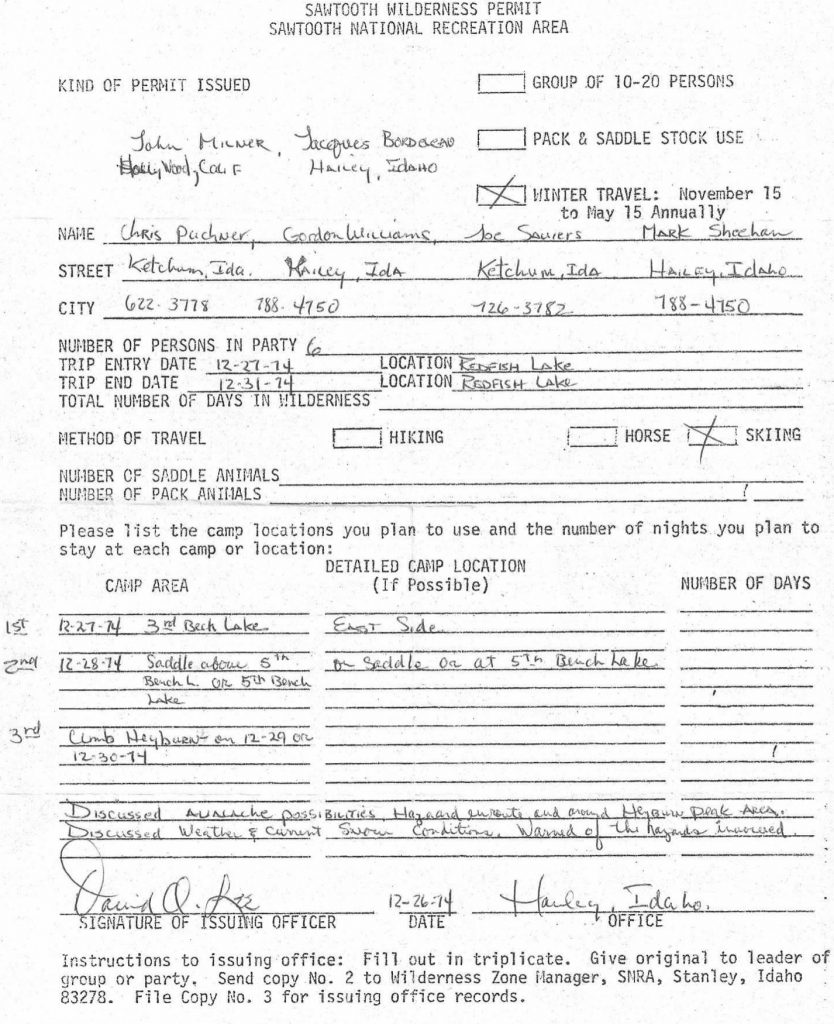 SAWTOOTH WILDERNESS PERMIT
SAWTOOTH NATIONAL RECREATION AREA
KIND OF PERMIT ISSUED
GROUP OF 10-20 PERSONS
John Milner, Jacques Bordeleau
PACK & SADDLE STOCK USE
Hollywood, Calif Hailey, Idaho
WINTER TRAVEL: November 15
to May 15 Annually
NAME Chris Puchner, Gordon Williams, Joe Sawiers Mark Sheehan
STREET Ketchum, Ida. Hailey, Ida Ketchum, Ida Hailey, Idaho
CITY 622-3778 788-4750 726-3782 788-4750
NUMBER OF PERSONS IN PARTY 6
TRIP ENTRY DATE 12-27-74 LOCATION Redfish Lake
TRIP END DATE 12-31-74 LOCATION Redfish Lake
TOTAL NUMBER OF DAYS IN WILDERNESS
METHOD OF TRAVEL HIKING HORSE SKIING
NUMBER OF SADDLE ANIMALS
NUMBER OF PACK ANIMALS
Please list the camp locations you plan to use and the number of nights you plan to
stay at each camp or location:
DETAILED CAMP LOCATION
CAMP AREA (If Possible) NUMBER OF DAYS
1st 12-27-74 3rd Bech Lake East Side
2nd 12-28-74 Saddle above 5th on Saddle or at 5th Bench Lake
Bench L. or 5th Bench
Lake
3rd Climb Heyburn on 12-29 or
12-30-74
Discussed avalache possibilities, Hazaard enroute and around Heyburn Peak Area.
Discussed Weather & Current Snow Conditions. Warned of the hazards involved.
David O. Lee 12-26-74 Hailey, Idaho.
SIGNATURE OF ISSUING OFFICER DATE OFFICE
Instructions to issuing office: Fill out in triplicate. Give original to leader of
group or party. Send copy No. 2 to Wilderness Zone Manager, SNRA, Stanley, Idaho
83278. File Copy No. 3 for issuing office records.